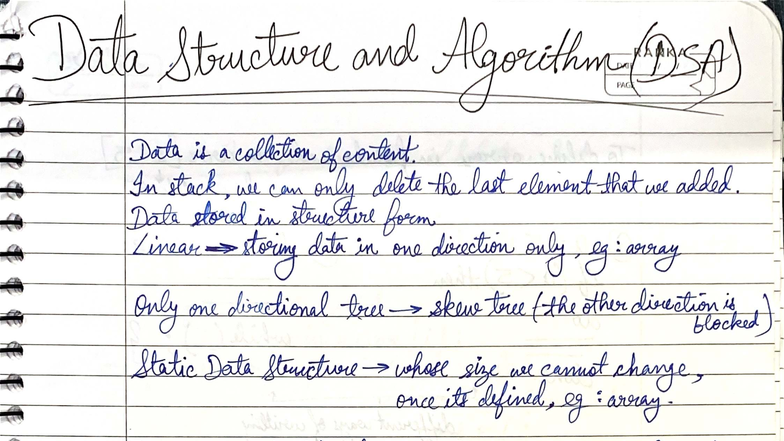 Data Structure and Algorithm (DSA)
Data is a collection of content.
In stack, we can only delete the last element that we added.
Data stored in structure form
Linear → storing data in one direction only, eg : array
Only one directional tree → skew tree (the other direction is
blocked)
Static Data Structure → whose size we cannot change,
once its defined, eg : array.